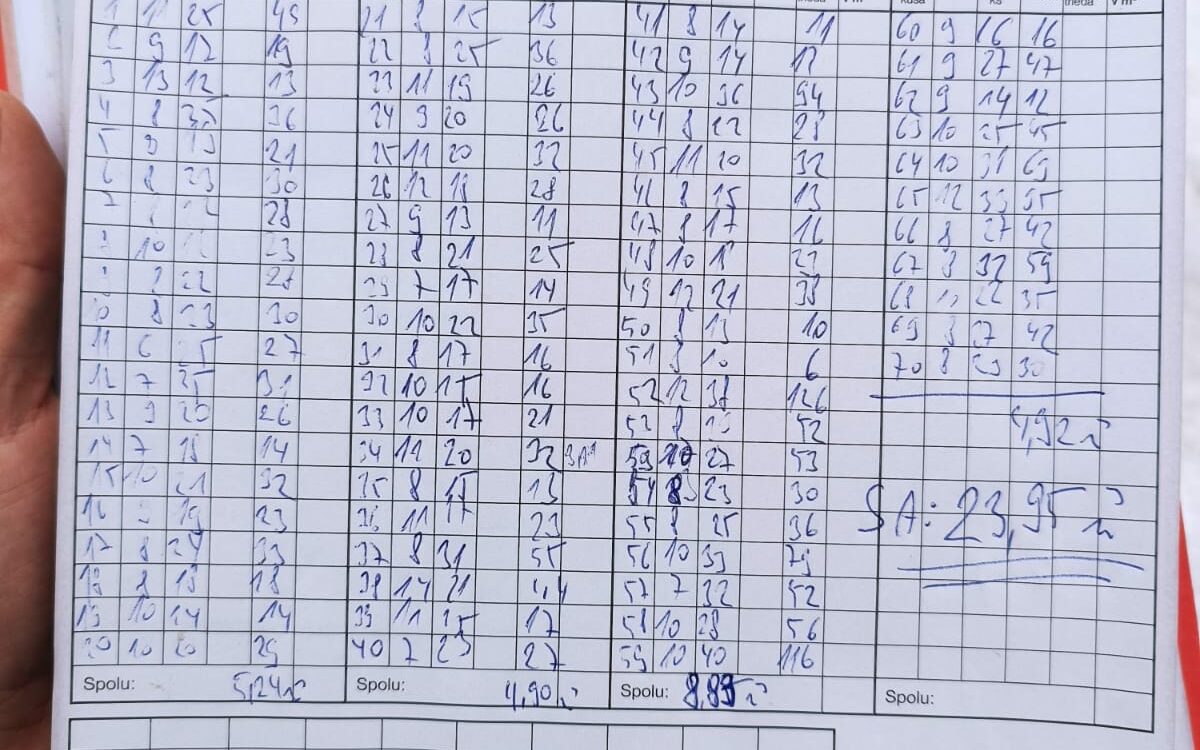 1 11 25 49 21 8 15 13 41 8 14 11 60 9 16 16
2 9 17 19 22 8 25 36 42 9 14 12 61 9 27 47
3 13 12 13 23 11 19 26 43 10 36 94 62 9 14 12
4 8 25 36 24 9 20 26 44 8 22 28 63 10 25 45
5 9 21 25 11 20 32 45 11 20 32 64 10 31 69
6 8 23 30 26 12 18 28 46 8 15 13 65 12 55
7 28 27 9 13 11 47 8 17 16 66 8 27 42
10 23 28 8 21 25 48 10 18 67 8 32 59
22 28 29 7 17 14 49 12 21 38 68 22 35
10 8 23 30 30 10 22 35 50 8 13 10 69 8 27 42
11 6 25 27 31 8 17 16 51 8 10 6 70 8 23 30
12 7 31 32 10 15 16 52 12 38 126
13 9 20 26 33 10 17 21 53 8 52 4,92
14 7 18 14 34 11 20 32 10 27 53
15 10 21 32 35 8 15 13 54 8 23 30 SA: 23,95
16 9 19 23 36 11 17 23 55 8 25 36
17 8 24 33 37 8 31 55 56 10 33 79
18 8 18 18 38 14 21 44 57 7 32 52
19 10 14 14 39 11 15 17 58 10 28 56
20 10 20 29 40 7 23 27 59 10 40 116
Spolu: 5,24 Spolu: 4,90 Spolu: 8,89 Spolu: